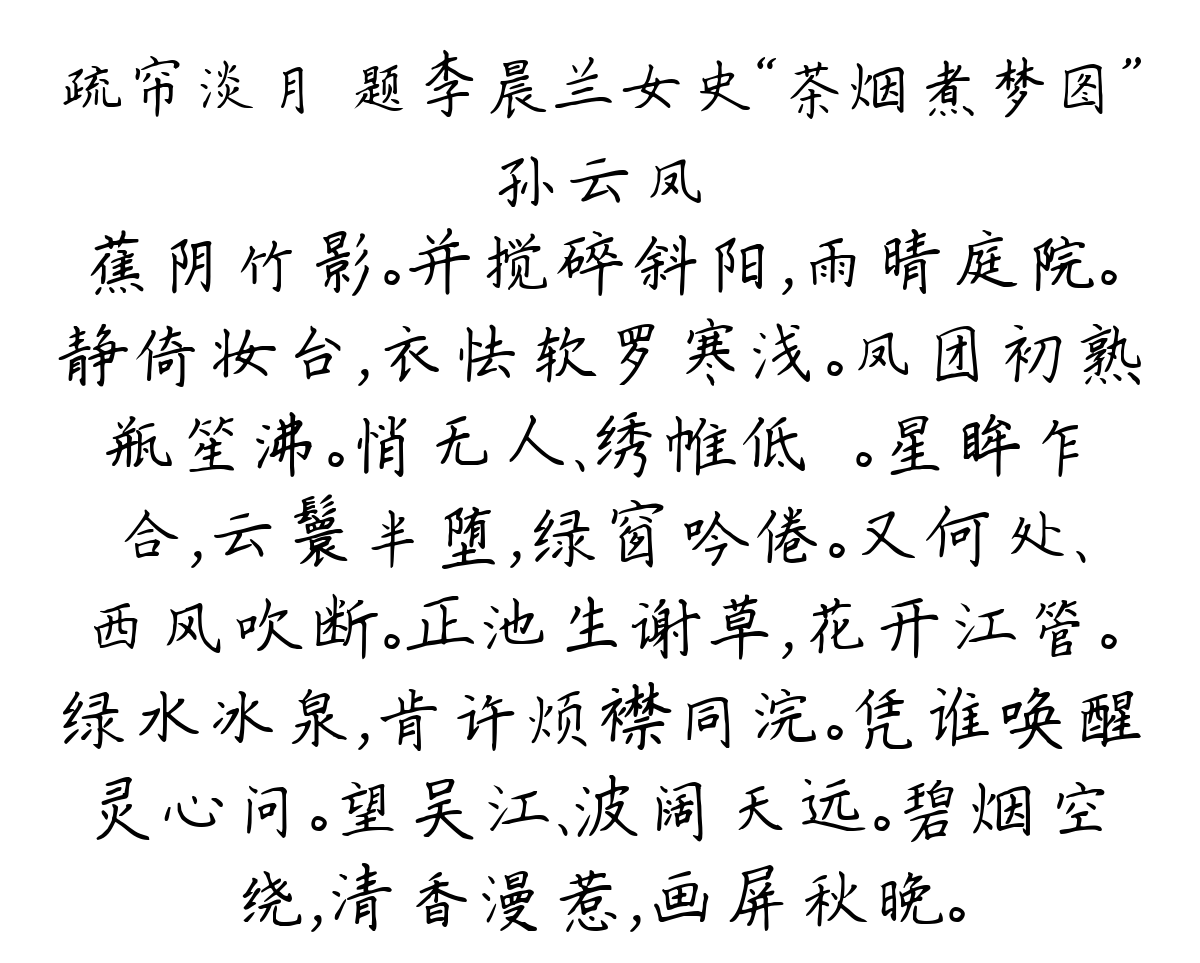 疏帘淡月 题李晨兰女史“茶烟煮梦图”
孙云凤
蕉阴竹影。并搅碎斜阳,雨晴庭院。
静倚妆台,衣怯软罗寒浅。凤团初熟
瓶笙沸。悄无人、绣帷低 。星眸乍
合,云鬟半堕,绿窗吟倦。又何处、
西风吹断。正池生谢草,花开江管。
绿水冰泉,肯许烦襟同浣。凭谁唤醒
灵心问。望吴江、波阔天远。碧烟空
绕,清香漫惹,画屏秋晚。